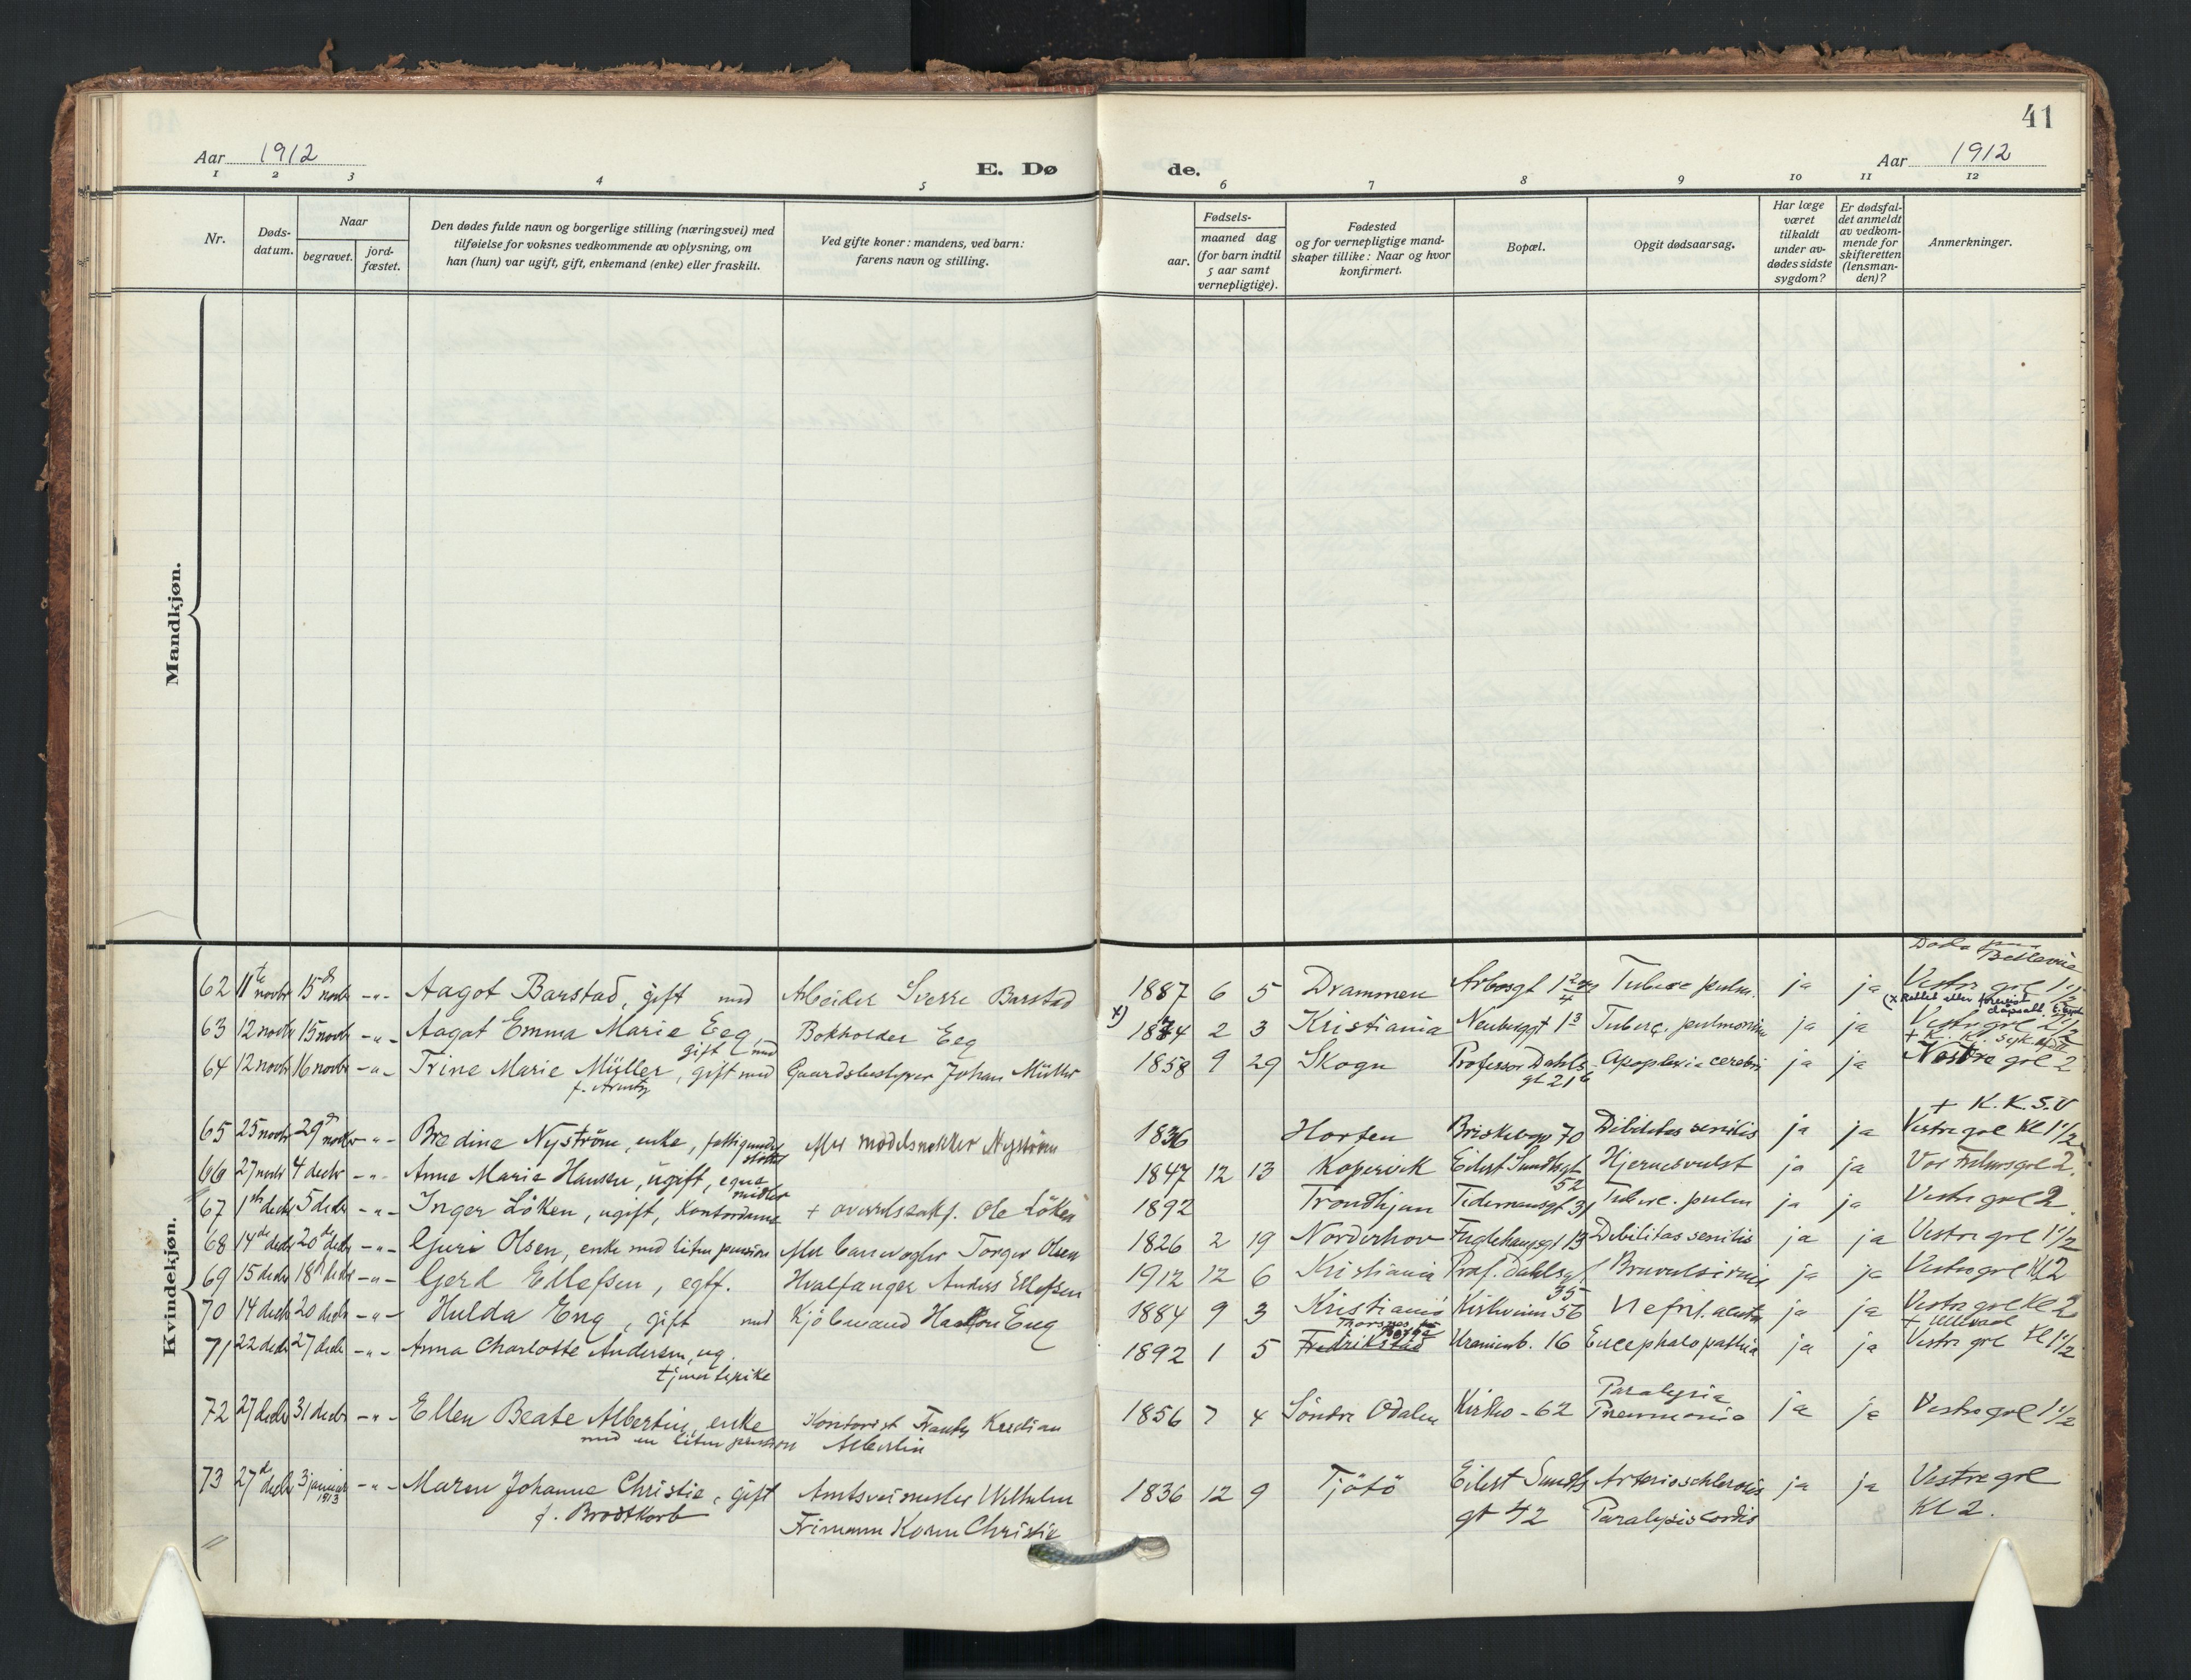 41
Aar 1912
E. Døde.
Aar 1912
1 2 3 4 5 6 7 8 9 10 11 12
Nr.
Døds-datum.
Naar
begravet.
jord-fæstet.
Den dødes fulde navn og borgerlige stilling (næringsvei) med
tilføielse for voksnes vedkommende av oplysning, om
han (hun) var ugift, gift, enkemand (enke) eller fraskilt.
Ved gifte koner: mandens, ved barn:
farens navn og stilling.
Fødsels-
aar.
maaned dag
(for barn indtil
5 aar samt
vernepligtige).
Fødested
og for vernepligtige mand-
skaper tillike: Naar og hvor
konfirmert.
Bopæl.
Opgit dødsaarsag.
Har læge
været
tilkaldt
under av-
dødes sidste
sygdom?
Er dødsfal-
det anmeldt
av vedkom-
mende for
skifteretten
(lensman-
den)?
Anmerkninger.
Mandkjøn.
Kvindekjøn.
Bellevue
62 11te novbr 15de novbr -"- Aagot Barstad, gift med Arbeider Sverre Barstad 1887 6 5 Drammen Tuberc pulm. ja ja Vestre grl 1 1/2
63 12 novbr 15 novbr -"- Aagot Emma Marie Eeg, Bokholder Eeg x) 1874 2 3 Kristiania Neuberggt 13 Tuberc. pulmonum ja ja Vestre grl 2 1/2
gift med
64 12 novbr 16 novbr -"- Trine Marie Müller, gift med Gaardsbestyrer Johan Müller 1858 9 29 Skogn Professor Dahls Apoplexia cerebri ja ja Vestre grl 2
f. Arntz gt 21
+ K.K.S.U
65 25 novbr 29de novbr -"- Bredine Nyström, enke, fattigunder Nyström 1836 Horten Briskebyv 70 Debilitas senilis ja ja Vestre grl Kl 1 1/2
støttet
66 27 novbr 4 decbr -"- Anna Marie Hansen, ugift, egne 1847 12 13 Kopervik Eilert Sundtsgt Hjernesvulst ja ja Vor Frelsersgrl 2.
midler 52
67 1ste decbr 5 decbr -"- Inger Löken, ugift, Kontordame + overretssakf. Ole Löken 1892 Trondhjem Tidemansgt 31 Tuberc. pulm ja ja Vestre grl 2
68 14de decbr 20de decbr -"- Guri Olsen, enke med liten pension Torger Olsen 1826 2 19 Norderhov Fuglehaugsgt 13 Debilitas senilis ja ja Vestre grl 1 1/2
69 15 decbr 18de decbr -"- Gerd Ellefsen, egtf. Hvalfanger Anders Ellefsen 1912 12 6 Kristiania Prof. Dahlsgt ja ja Vestre grl Kl 2
35
70 14 decbr 20 decbr -"- Hulda Eng, gift med Kjöbmand Haakon Eng 1884 9 3 Kristiania Kirkeveien 56 Nefrit. acuta ja ja Vestre grl Kl 2
Thorsnes pr Borge + Ullevaal
71 22 decbr 27 decbr -"- Anna Charlotte Andersen, ug. 1892 1 5 Fredrikstad Uranienb. 16 Encephalopathia ja ja Vestre grl Kl 1 1/2
tjenestepike
Paralysia
72 27 decbr 31 decbr -"- Ellen Beate Albertin, enke Kontorist Frantz Kristian 1856 7 4 Söndre Odalen Kirkev - 62 Pneumonia ja ja Vestre grl 1 1/2
med en liten pension Albertin
73 27de decbr 3 januar 1913 -"- Maren Johanne Christie, gift Amtsveimester Wilhelm 1836 12 9 Tjötö Eilert Sundts Arteriosclerosis ja ja Vestre grl
f. Brodtkorb Frimann Koren Christie gt 42 Paralysis cordis Kl 2.